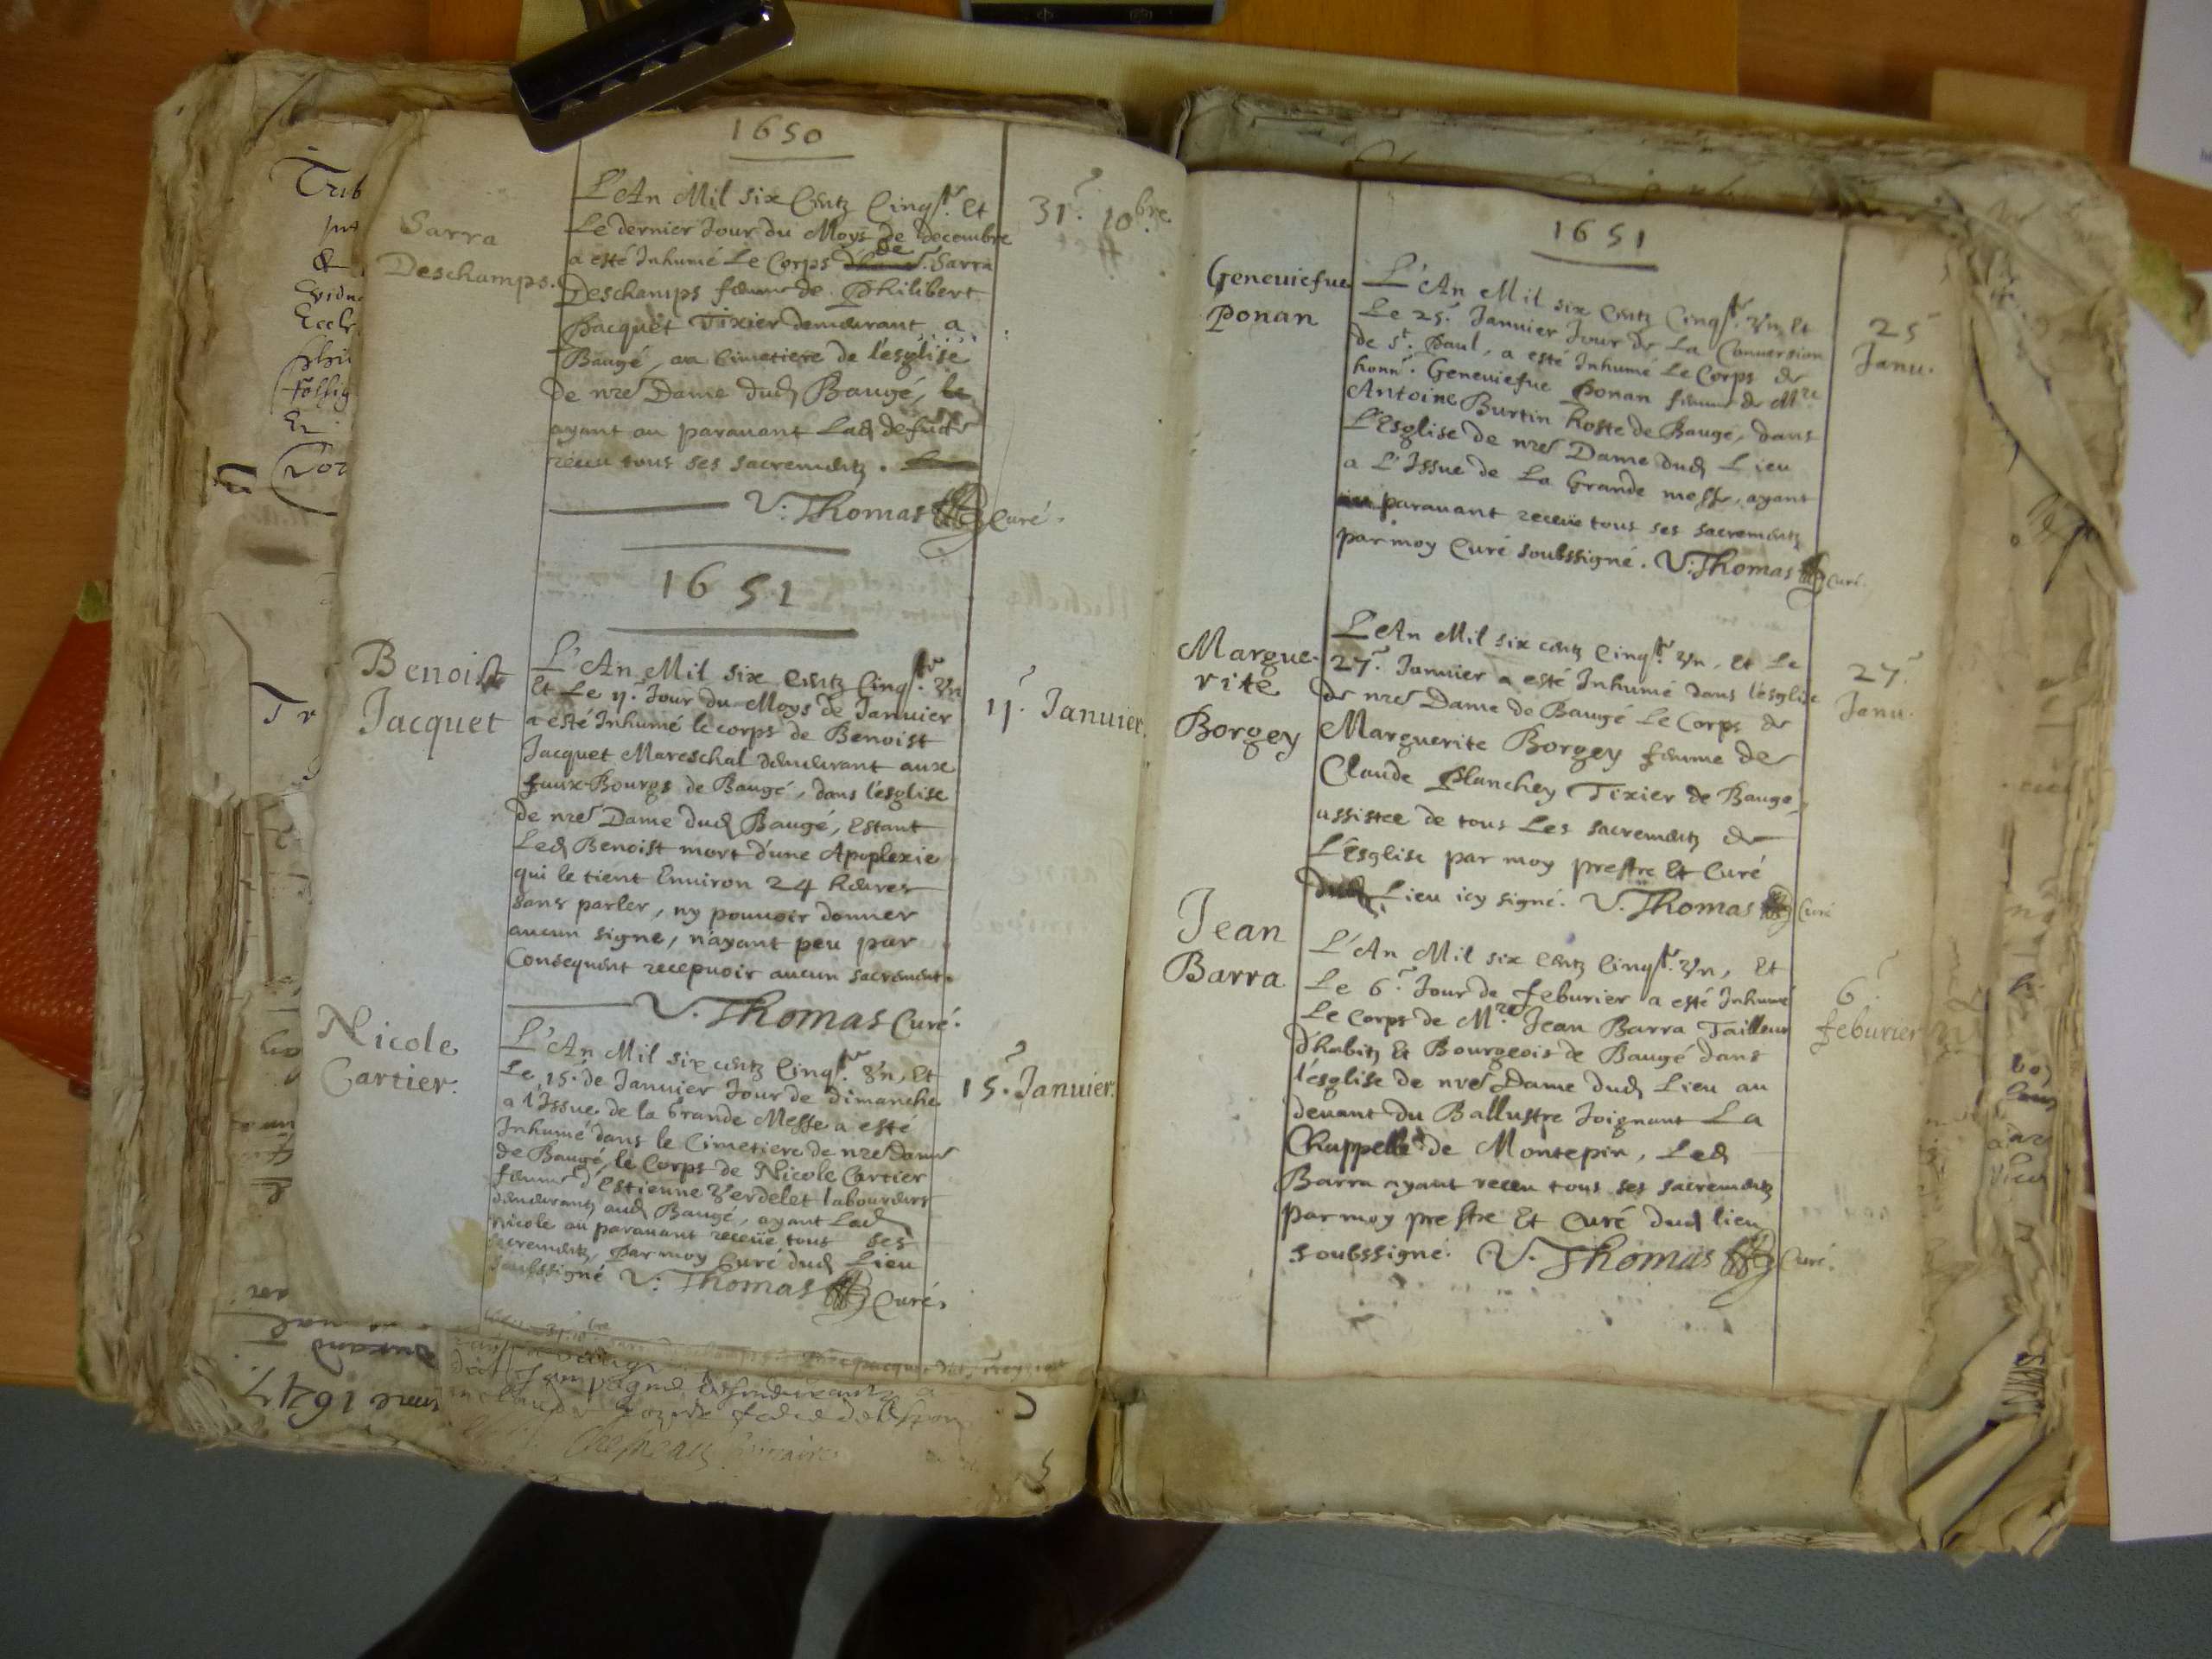 1650
Sarra
Deschamps.
L'An Mil six Centz Cinqte. Et
Le dernier Jour du Moys de Decembre
a esté Inhumé Le Corps de Sarra
Deschamps femme de Philibert
Pacquet Tixier demeurant a
Baugé, au Cimetiere de l'esglise
de nre Dame dud Baugé, le
ayant au parauant Lad defucte
receu tous ses sacrementz.
V: Thomas Curé.
31e. 10bre
1651
Benoist
Jacquet
L'An Mil six Centz Cinqte. Vn
Et Le 11e. Jour du Moys de Januier
a esté Inhumé le corps de Benoist
Jacquet Mareschal demeurant aux
faux-Bourgs de Baugé, dans l'esglise
de nre Dame dud Baugé, Estant
Led Benoist mort d'une Apoplexie
qui le tient Enuiron 24 heures
sans parler, ny pouuoir donner
aucun signe, n'ayant peu par
Consequent recepuoir aucun sacrement.
V. Thomas Curé.
11e. Januier.
Nicole
Cartier.
L'An Mil six centz Cinqte. Vn, Et
Le 15. de Januier Jour de Dimanche
a l'Issue de la Grande Messe a esté
Inhumé dans le Cimetiere de nre Dame
de Baugé, le Corps de Nicole Cartier
femme d'Estienne Verdelet laboureurs
demeurantz aud Baugé, ayant Lad
Nicole au parauant receüe tous ses
sacrementz, Par moy Curé dud Lieu
soubssigné V: Thomas Curé.
15e. Januier.
1651
Geneuiefue
Ponan
L'An Mil six Centz Cinqte. Vn Et
Le 25e. Januier Jour de La Conuersion
de St. Paul, a esté Inhumé Le Corps de
honne. Geneuiefue Ponan femme de Mre
Antoine Burtin hoste de Baugé, dans
L'Esglise de nre Dame dud Lieu
a L'Issue de La Grande messe, ayant
parauant receüe tous ses sacrementz
par moy Curé soubssigné. V: Thomas Curé.
25e
Janu.
Margue-
rite
Borgey
L'An Mil six centz Cinqte. Vn, Et Le
27e. Januier a esté Inhumé dans l'esglise
de nre Dame de Baugé Le Corps de
Marguerite Borgey femme de
Claude Planchey Tixier de Baugé,
assistee de tous Les sacrementz de
L'Esglise par moy prestre Et Curé
dud Lieu icy signé. V. Thomas Curé
27e.
Janu.
Jean
Barra
L'An Mil six Centz Cinqte. Vn, Et
Le 6e. Jour de feburier a esté Inhumé
Le Corps de Mre Jean Barra Tailleur
d'habitz Et Bourgeois de Baugé dans
l'esglise de nre Dame dud Lieu au
deuant du Ballustre Joignant La
Chappelle de Montepin, Led
Barra ayant receu tous ses sacrementz
par moy prestre Et Curé dud lieu
soubssigné. V. Thomas Curé.
6e.
feburier